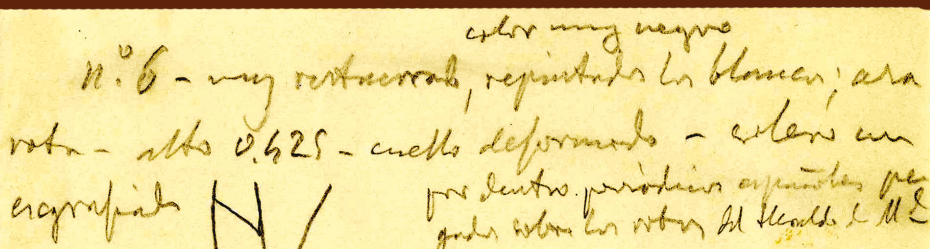 color muy negro
nº 6 - muy restaurado, repintados los blancos; asa
rota - alto 0.425 - cuello deformado - color un
esgrafiado
por dentro periódicos españoles pe
gados sobre los rotos del Heraldo de M